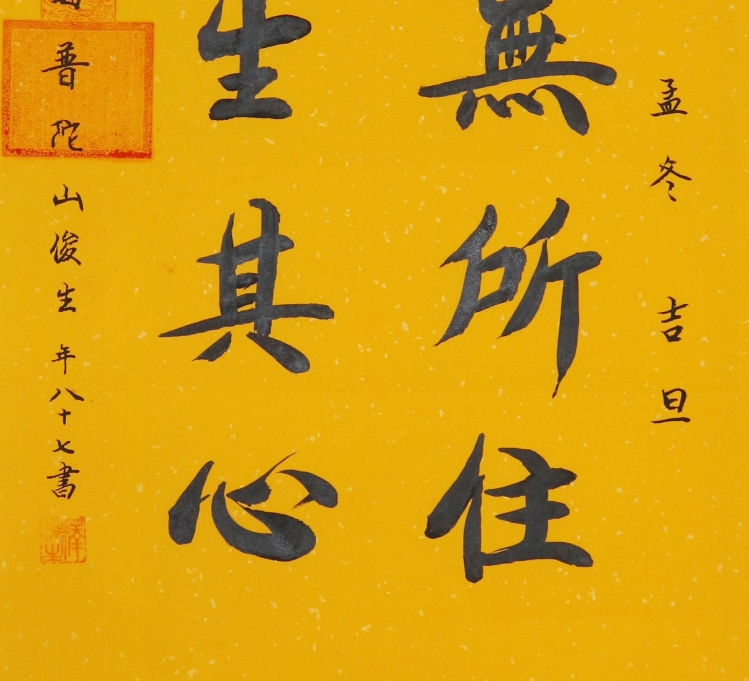 孟冬 吉旦
無所住
生其心
普陀山俊生 年八十七書